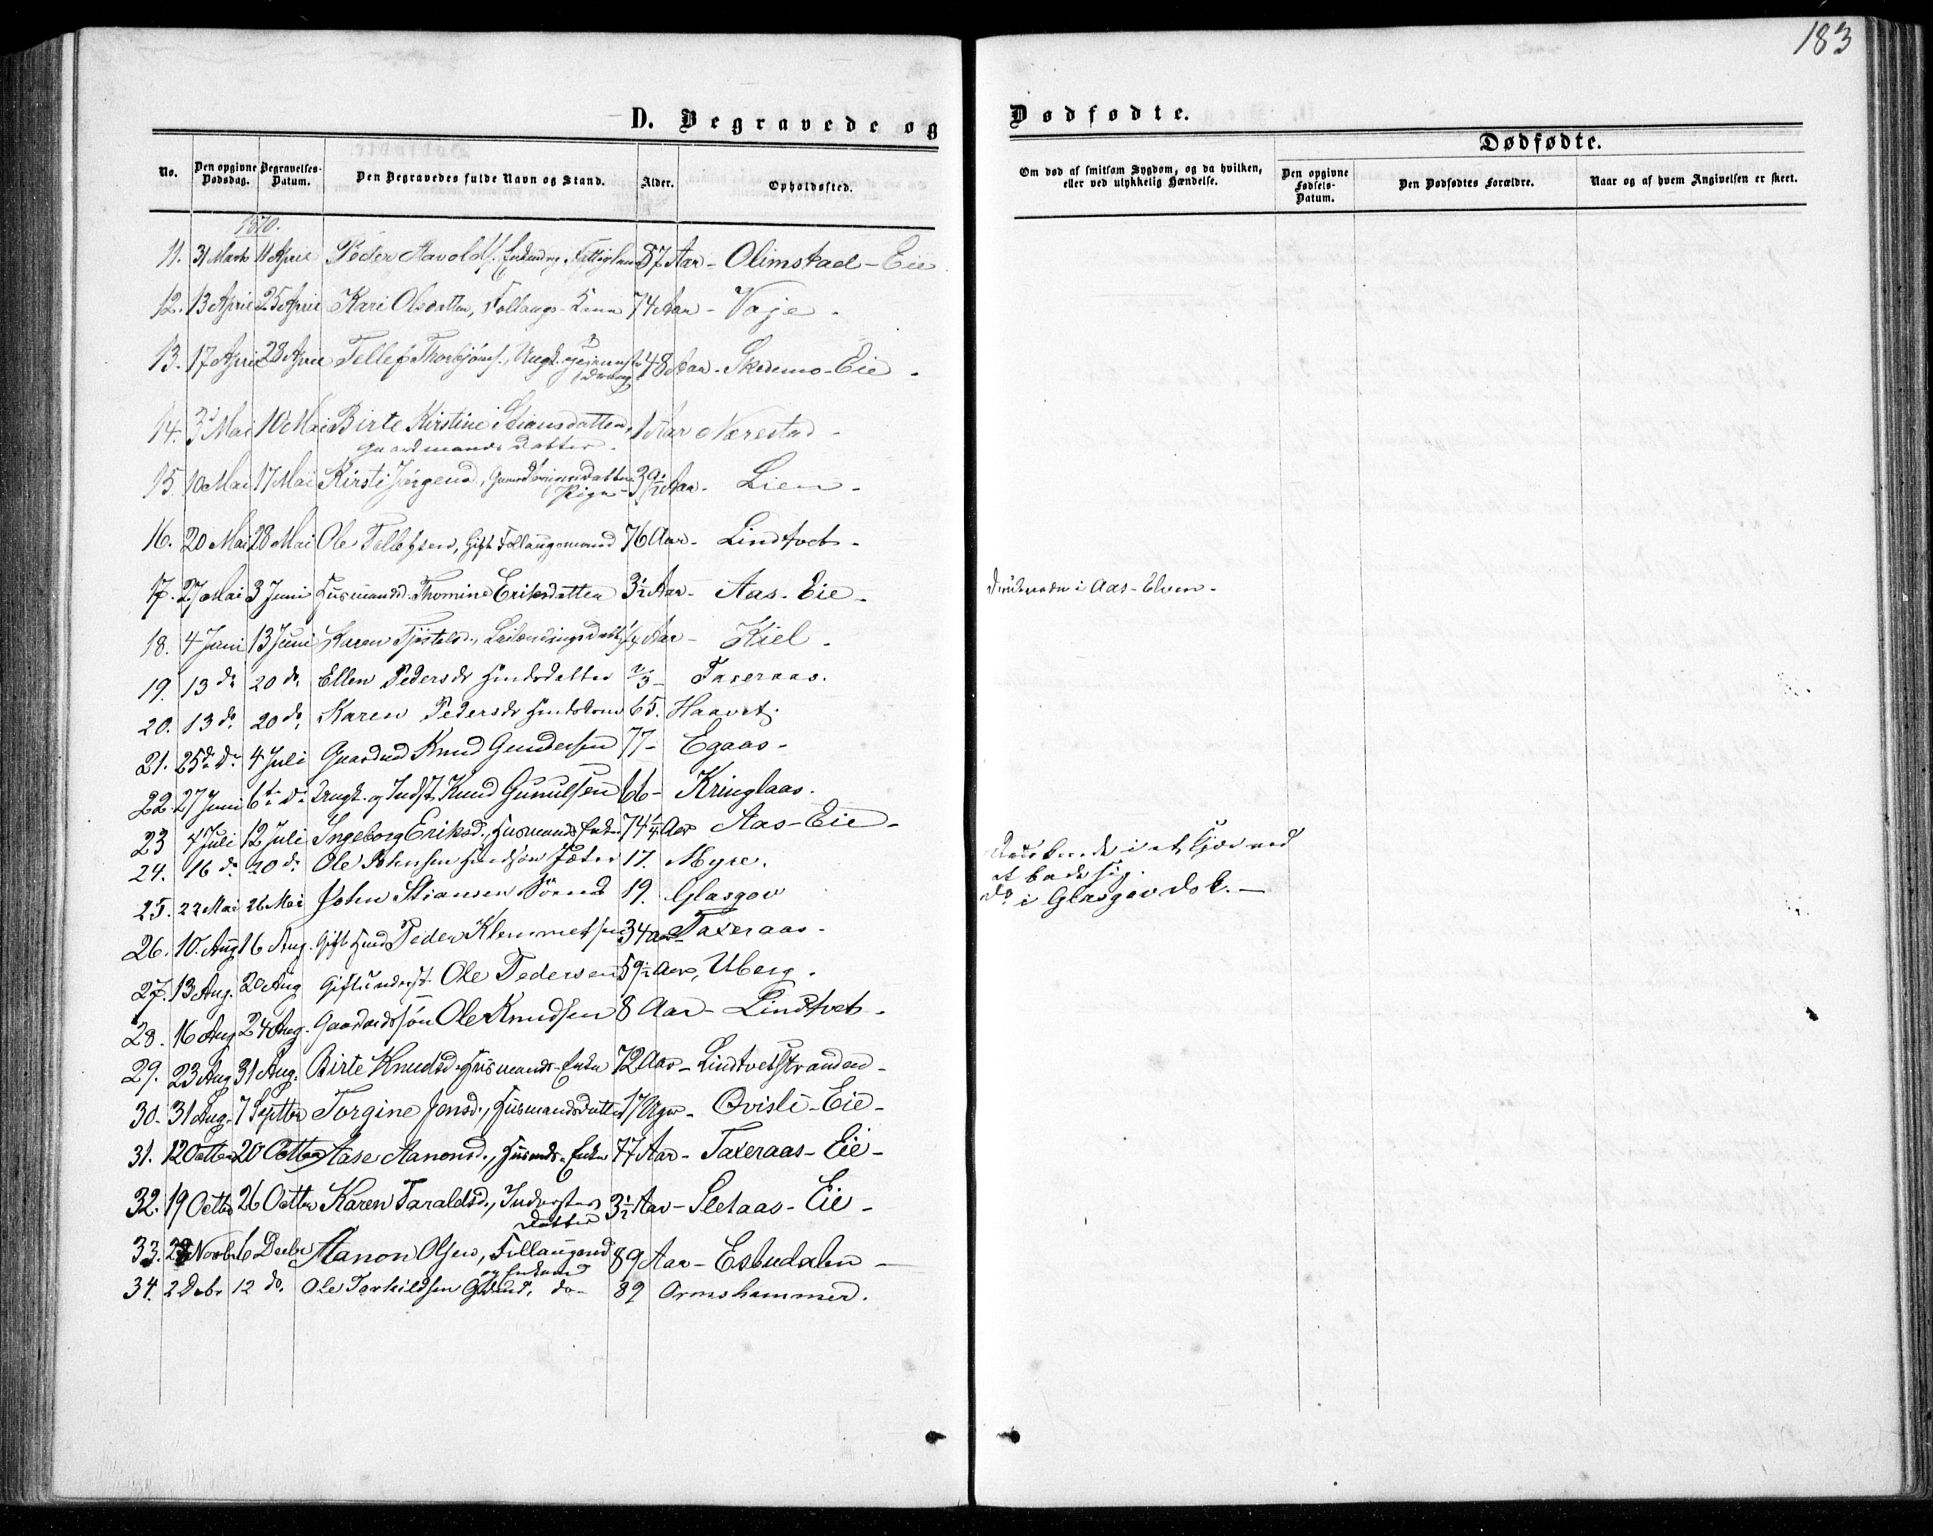 183
D. Begravede og Dødfødte.
Dødfødte.
No. Den opgivne Dødsdag. Begravelses-Datum. Den Begravedes fulde Navn og Stand. Alder. Opholdssted. Om død af smitsom Sygdom, og da hvilken, eller ved ulykkelig Hændelse. Den opgivne Fødsels-Datum. Den Dødfødtes Forældre. Naar og af hvem Angivelsen er skeet.
1870.
11. 31 Marts 11 April Peder Aavolds. Enkemd og 57 Aar - Olimstad - Eie
12. 13 April 25 April Kari Olsdatter, Follaugs-Kone 74 Aar - Vaje -
13. 17 April 28 April Tellef Thorbjørns., Ungk. 48 Aar - Skedsmo - Eie -
14. 3 Mai 10 Mai Birte Kirstine Stiansdatter, 1 Aar Nærestad -
Gaardmands Datter -
15. 10 Mai 17 Mai Kirsti Jørgensd., 39 1/2 Aar - Lien -
Pige
16. 20 Mai 28 Mai Ole Tellefsen, Gift Follaugsmand 76 Aar - Lindtvet -
17. 27 Mai 3 Juni Husmandsd. Thomine Eriksdatter 3 1/2 Aar - Aas - Eie - Druknede i Aas-Elven -
18. 4 Juni 13 Juni Karen Tjøstelsd., Leilændingsdatt. 1/4 Aar - Kiel -
19. 13 do 20 do Ellen Pedersdr 2/3 - Taxeraas.
20. 13 do 20 do Karen Pedersdr 65. Haavet.
21. 25 do 4 Juli Gaardmd Knud Gundersen 77 - Egaas -
22. 27 Juni 6te do Ungk. og Indst. Knud Gunulfsen 66 - Kringlaas.
23 4 Juli 12 Juli Ingeborg Eriksd., Husmands Enke 74 1/4 Aar Aas - Eie -
24. 16 do 20 do Ole Johnsen 17. Myre. Druknede i et Kjær ved
at bade sig.
25. 22 Mai 26 Mai John Stiansen 19. Glasgov do i Glasgov dok. -
26. 10. Aug 16 Aug. Gift Peder Klemmetsen 34 Aar - Taxeraas -
27. 13 Aug. 20 Aug Gift Inderst. Ole Pedersen 59 1/2 Aar, Uberg.
28. 16 Aug 24 Aug. Gaardmdssøn Ole Knudsen 8 Aar - Lindtvet -
29. 23 Aug 31 Aug. Birte Knudsd. Husmands-Enke 72 Aar - Lindtvetstranden -
30. 31 Aug. 7 Septbr Torgine Jensd., Husmandsdatter 17 Uger - Qvisli - Eie -
31. 12 Octbr 20 Octbr Aase Aanonsd., Husmds-Enke 77 Aar - Taxeraas - Eie -
32. 19 Octbr 26 Octbr Karen Taraldsd., Inderstes 3 1/2 Aar - Sletaas - Eie -
Datter
33. 28 Novbr 6 Decbr Aanon Olsen, Follaugsmd 89 Aar - Esbudalen -
og Enkemd
34. 2 Debr 12 do Ole Torkildsen do - 89 Ormshammer.